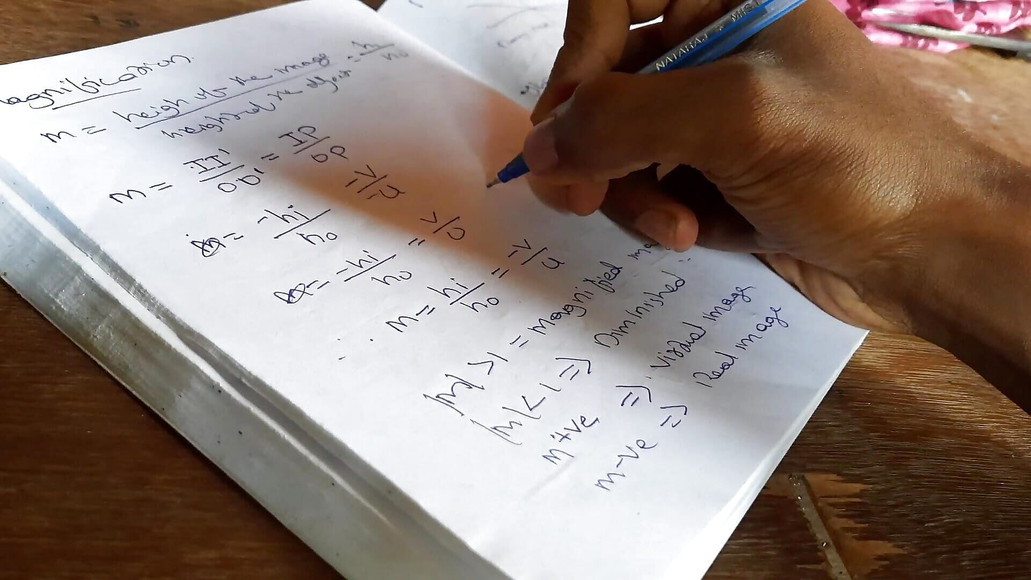 agnification.
m = heigh of the image / height of the object = h / ho
m = II' / OO' = IP / OP
= -hi / ho -v / -u
= -hi / ho = v / u
∴ m = hi / ho = -v / u
|m| > 1 = magnified
|m| < 1 => Diminished
m +ve => Virtual image
m -ve => Real image
NATARAJ